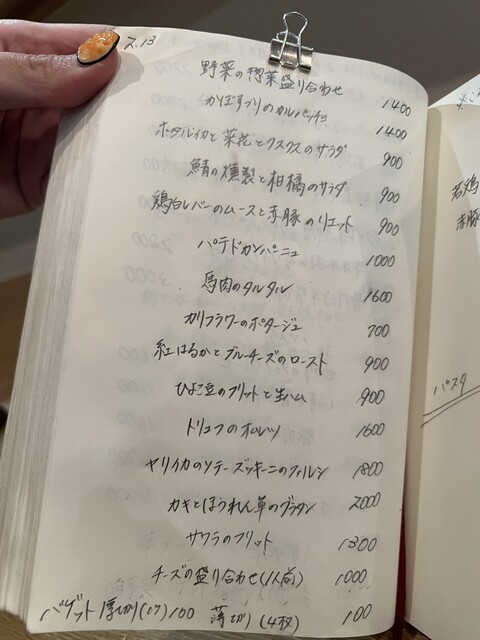 2.13
野菜の惣菜盛り合わせ 1400
かぼすブリのカルパッチョ 1400
ホタルイカと菜花とクスクスのサラダ 900
鯖の燻製と柑橘のサラダ 900
鶏白レバーのムースと赤豚のリエット 900
パテドカンパーニュ 1000
馬肉のタルタル 1600
カリフラワーのポタージュ 700
紅はるかとブルーチーズのロースト 900
ひよこ豆のフリットと生ハム 900
トリュフのオムレツ 1600
ヤリイカのソテーズッキーニの 1800
カキとほうれん草のグラタン 2000
サワラのフリット 1300
チーズの盛り合わせ(1人前) 1000
バゲット 厚切り(1ケ)100 薄切り(4枚) 100
若鶏
赤豚
パスタ